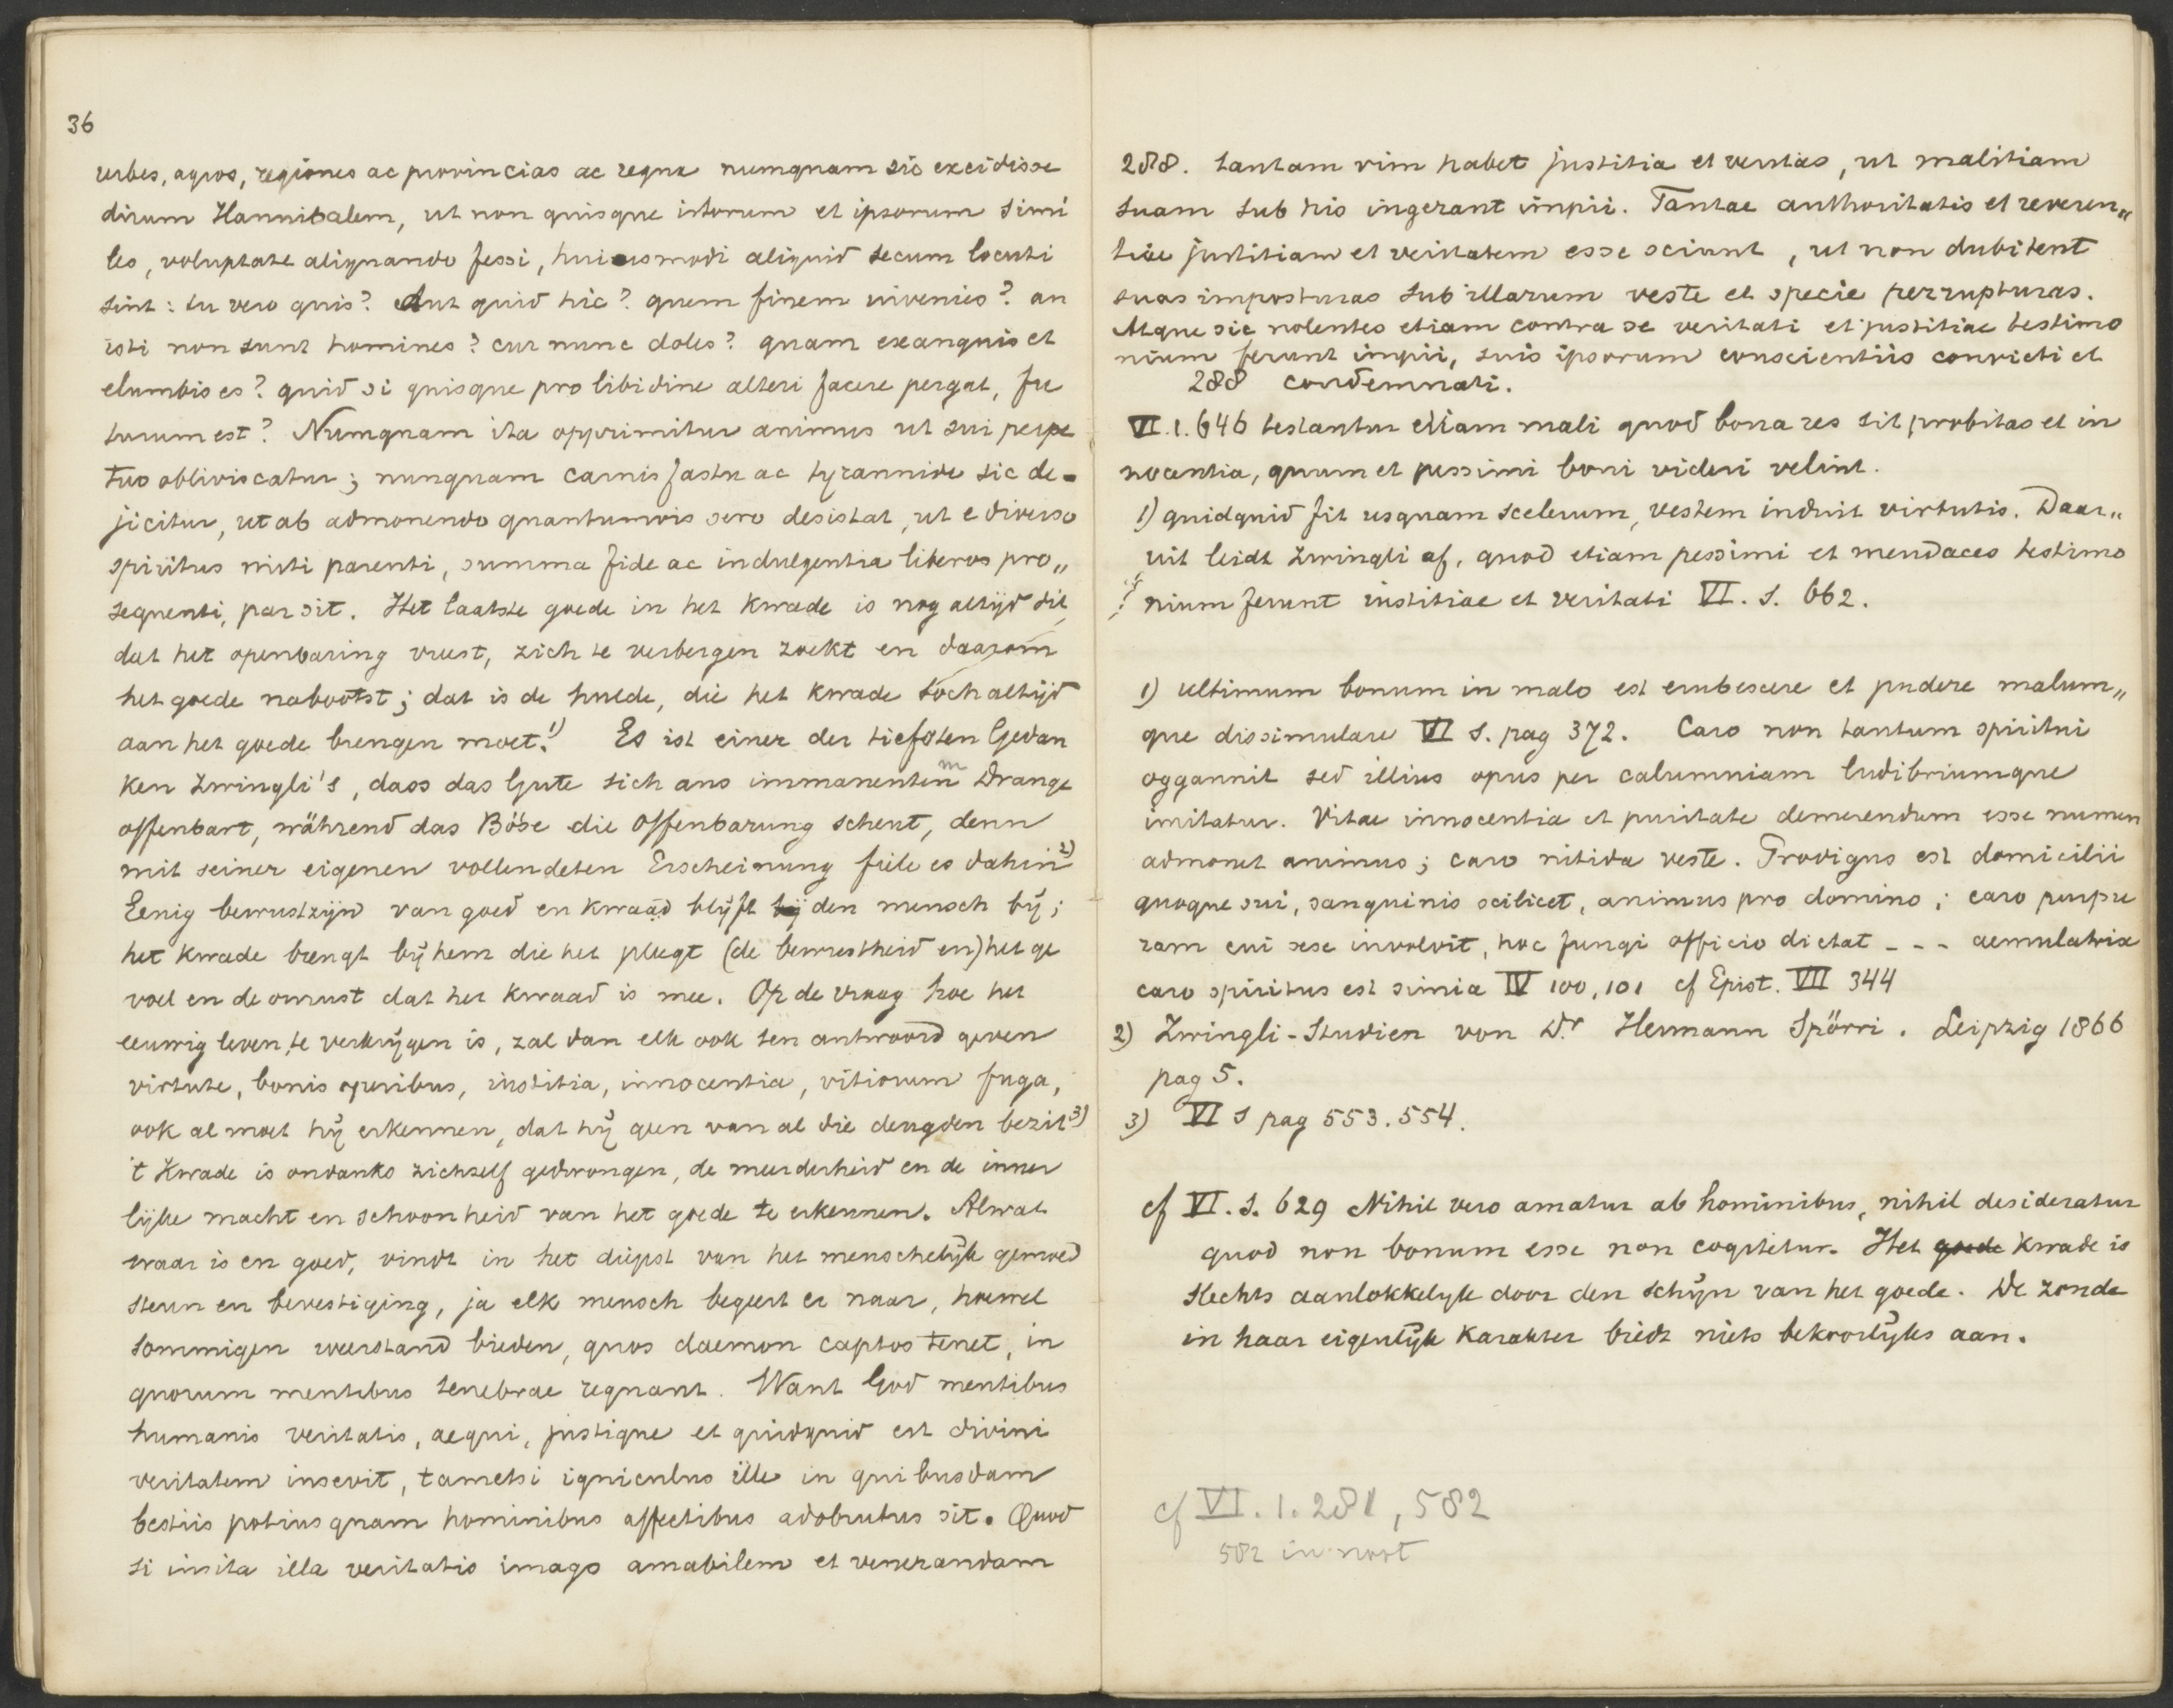 36
urbes, agros, regiones ac provincias ac regna numquam sic excidisse
dirum Hannibalem, ut non quisque istorum et ipsorum simi
les, voluptate aliquando fessi, huiusmodi aliquid secum locuti
sint: tu vero quis? Aut quid hic? quem finem invenies? an
isti non sunt homines? cur nunc doles? quam exanguis et
elumbis es? quid si quisque pro libidine alteri facere pergat, fu
turum est? Numquam ita opprimitur animus ut sui perpe
tuo obliviscatur; nunquam carnis fastu ac tyrannide sic de-
jicitur, ut ab admonendo quantumvis sero desistat, ut e diverso
spiritus miti parenti, summa fide ac indulgentia liberos pro„
sequenti, par sit. Het laatste goede in het kwade is nog altijd dit,
dat het openbaring vreest, zich te verbergen zoekt en daarom
het goede nabootst; dat is de hulde, die het kwade toch altijd
aan het goede brengen moet.1) Es ist einer der tiefsten Gedan
ken Zwingli's, dass das Gute sich aus immanentem Drange
offenbart, während das Böse die Offenbarung scheut, denn
mit seiner eigenen vollendeten Erscheinung fiele es dahin2)
Eenig bewustzijn van goed en kwaad blijft bij den mensch bij;
het kwade brengt bij hem die het pleegt (de bewustheid en) het ge
voel en de onrust dat het kwaad is mee. Op de vraag hoe het
eeuwig leven te verkrijgen is, zal dan elk ook ten antwoord geven
virtute, bonis operibus, iustitia, innocentia, vitiorum fuga,
ook al moet hij erkennen, dat hij geen van al die deugden bezit3)
't Kwade is ondanks zichzelf gedwongen, de meerderheid en de inner
lijke macht en schoonheid van het goede te erkennen. Alwat
waar is en goed, vindt in het diepst van het menschelijk gemoed
steun en bevestiging, ja elk mensch begeert er naar, hoewel
sommigen weerstand bieden, quos daemon captos tenet, in
quorum mentibus tenebrae regnant. Want God mentibus
humanis veritatis, aequi, justique et quidquid est divini
veritatem insevit, tametsi igniculus ille in quibusdam
bestiis potius quam hominibus affectibus adobrutus sit. Quod
si insita illa veritatis imago amabilem et venerandam
288. tantam vim habet justitia et veritas, ut malitiam
suam sub his ingerant impii. Tantae authoritatis et reveren„
tiae justitiam et veritatem esse sciunt, ut non dubitent
suas imposturas sub illarum veste et specie perrupturas.
Atque sic nolentes etiam contra se veritati et justitiae testimo
nium ferunt impii, suis ipsorum conscientiis convicti et
288 condemnati.
VI. 1. 646 testantur etiam mali quod bona res sit probitas et in
nocentia, quum et pessimi boni videri velint.
1) quidquid fit usquam scelerum, vestem induit virtutis. Daar„
uit leidt Zwingli af, quod etiam pessimi et mendaces testimo
nium ferunt iustitiae et veritati VI. 1. 662.
1) ultimum bonum in malo est erubescere et pudere malum„
que dissimulare VI 1. pag 372. Caro non tantum spiritui
oggannit sed illius opus per calumniam ludibriumque
imitatur. Vitae innocentia et puritate demerendum esse numen
admonet animus; caro nitida veste. Prodigus est domicilii
quoque sui, sanguinis scilicet, animus pro domino; caro purpu
ram cui sese involvit, hoc fungi officio dictat - - - aemulatrix
caro spiritus est simia IV 100, 101 cf Epist. VII 344
2) Zwingli-Studien von Dr Hermann Spörri. Leipzig 1866
pag 5.
3) VI 1 pag 553. 554.
cf VI. 1. 629 Nihil vero amatur ab hominibus, nihil desideratur
quod non bonum esse non cogitetur. Het goede kwade is
slechts aanlokkelijk door den schijn van het goede. De zonde
in haar eigenlijk karakter biedt niets bekoorlijks aan.
cf VI. 1. 281, 582
582 in noot